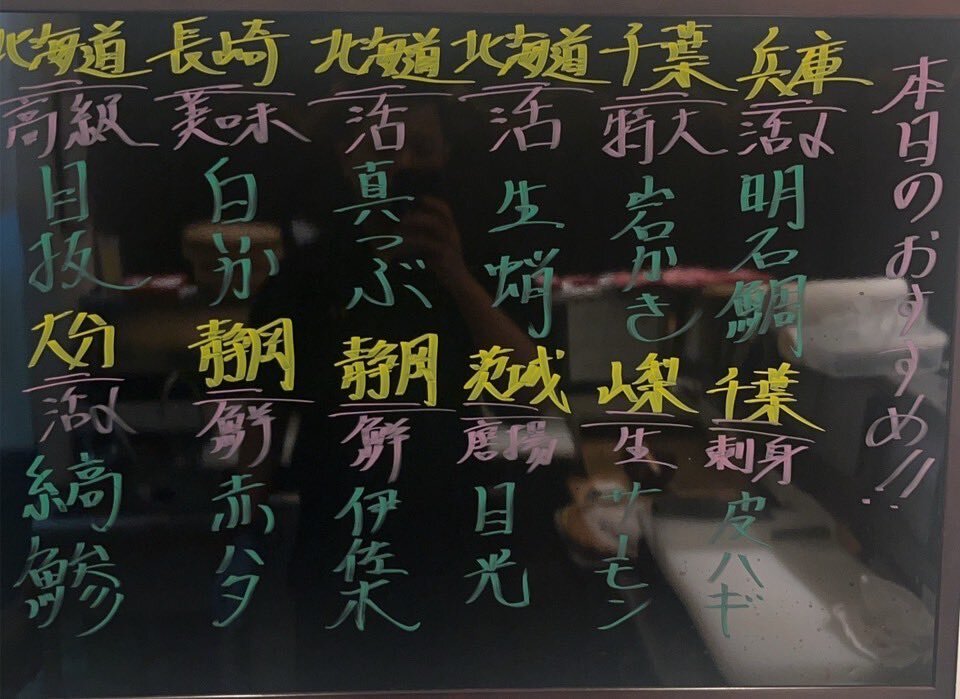 本日のおすすめ!!
兵庫
活〆
明石鯛
千葉
特大
岩かき
北海道
活
生蛸
北海道
活
真つぶ
長崎
美味
白いか
北海道
高級
目抜
千葉
刺身
皮ハギ
山梨
生
サーモン
茨城
唐揚
目光
静岡
鮮
伊佐木
静岡
鮮
赤ハタ
大分
活〆
縞鯵